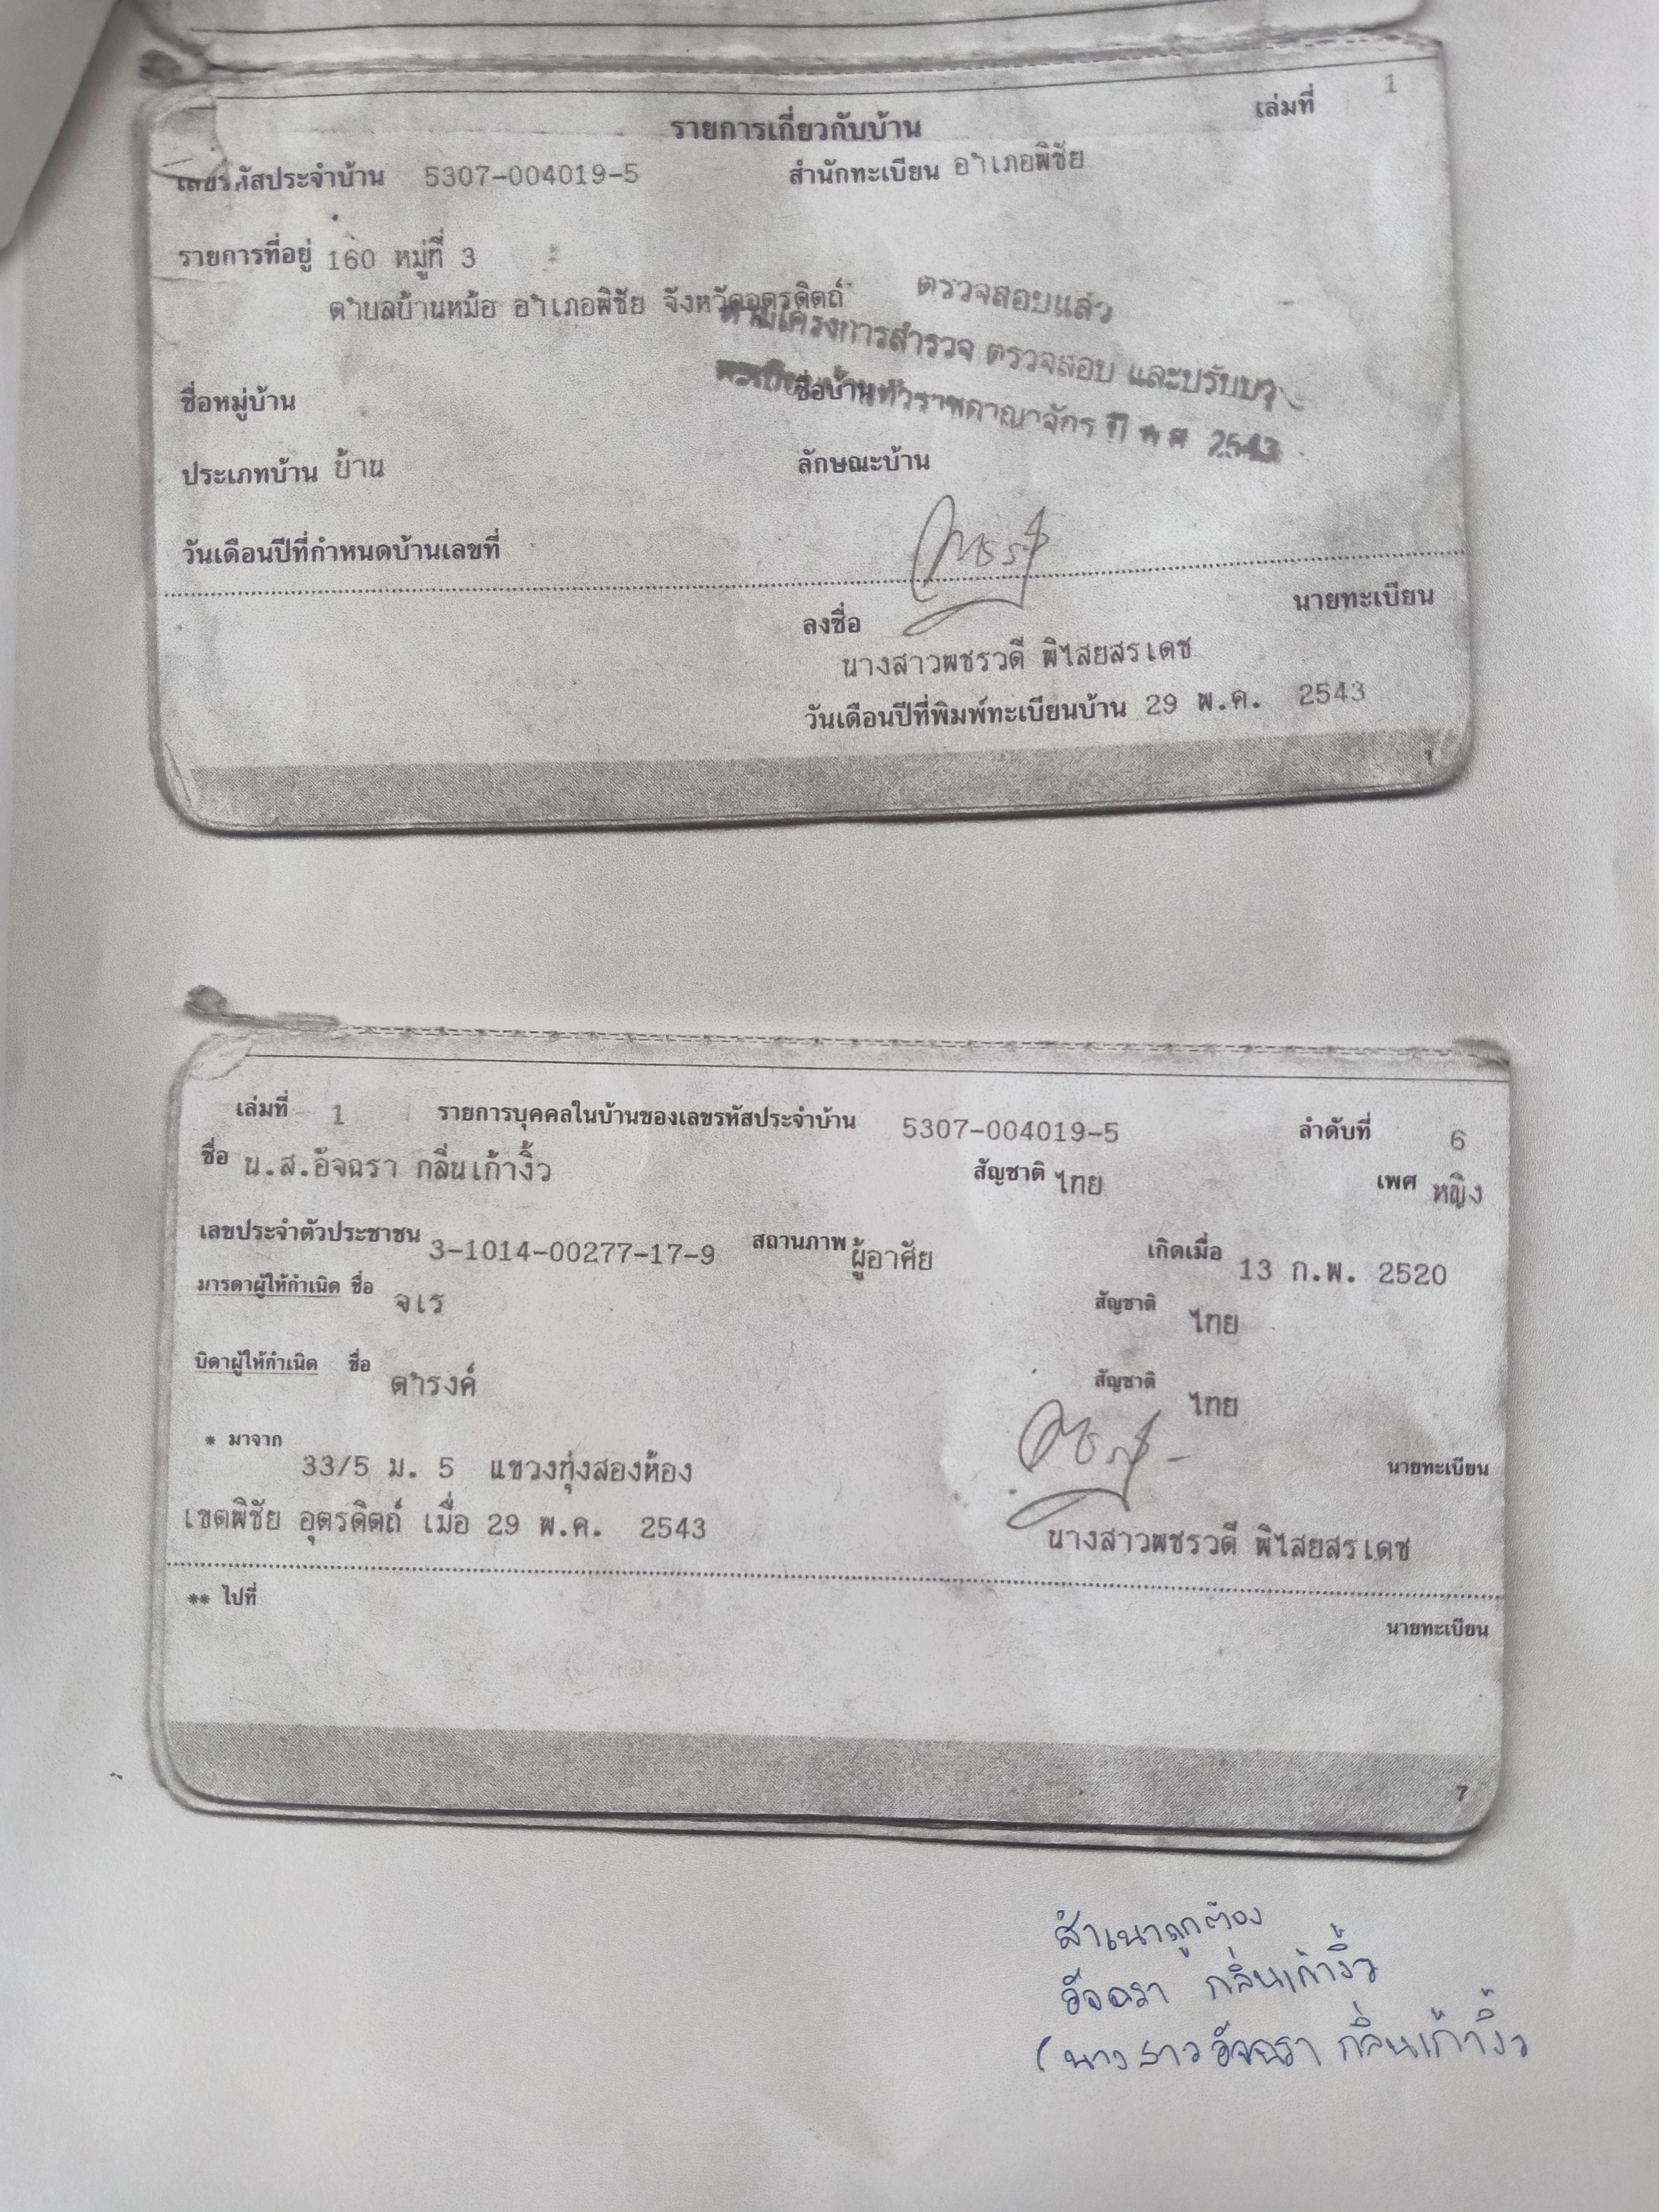 เล่มที่ 1
รายการเกี่ยวกับบ้าน
เลขรหัสประจำบ้าน 5307-004019-5 สำนักทะเบียน อำเภอพิชัย
รายการที่อยู่ 160 หมู่ที่ 3
ตำบลบ้านหม้อ อำเภอพิชัย จังหวัดอุตรดิตถ์
ตรวจสอบแล้ว
ตามโครงการสำรวจ ตรวจสอบ และปรับปรุง
ทะเบียนบ้านทั่วราชอาณาจักร ปี พ.ศ. 2543
ชื่อหมู่บ้าน ชื่อบ้าน
ประเภทบ้าน บ้าน ลักษณะบ้าน
วันเดือนปีที่กำหนดบ้านเลขที่
ลงชื่อ นายทะเบียน
นางสาวพชรวดี พิไสยสรเดช
วันเดือนปีที่พิมพ์ทะเบียนบ้าน 29 พ.ค. 2543
เล่มที่ 1 รายการบุคคลในบ้านของเลขรหัสประจำบ้าน 5307-004019-5 ลำดับที่ 6
ชื่อ น.ส.อัจฉรา กลิ่นเก้างิ้ว สัญชาติ ไทย เพศ หญิง
เลขประจำตัวประชาชน 3-1014-00277-17-9 สถานภาพ ผู้อาศัย เกิดเมื่อ 13 ก.พ. 2520
มารดาผู้ให้กำเนิด ชื่อ จเร สัญชาติ ไทย
บิดาผู้ให้กำเนิด ชื่อ ดำรงค์ สัญชาติ ไทย
* มาจาก 33/5 ม. 5 แขวงทุ่งสองห้อง นายทะเบียน
เขตพิชัย อุตรดิตถ์ เมื่อ 29 พ.ค. 2543
นางสาวพชรวดี พิไสยสรเดช
** ไปที่
นายทะเบียน
7
สำเนาถูกต้อง
อัจฉรา กลิ่นเก้างิ้ว
(นางสาวอัจฉรา กลิ่นเก้างิ้ว